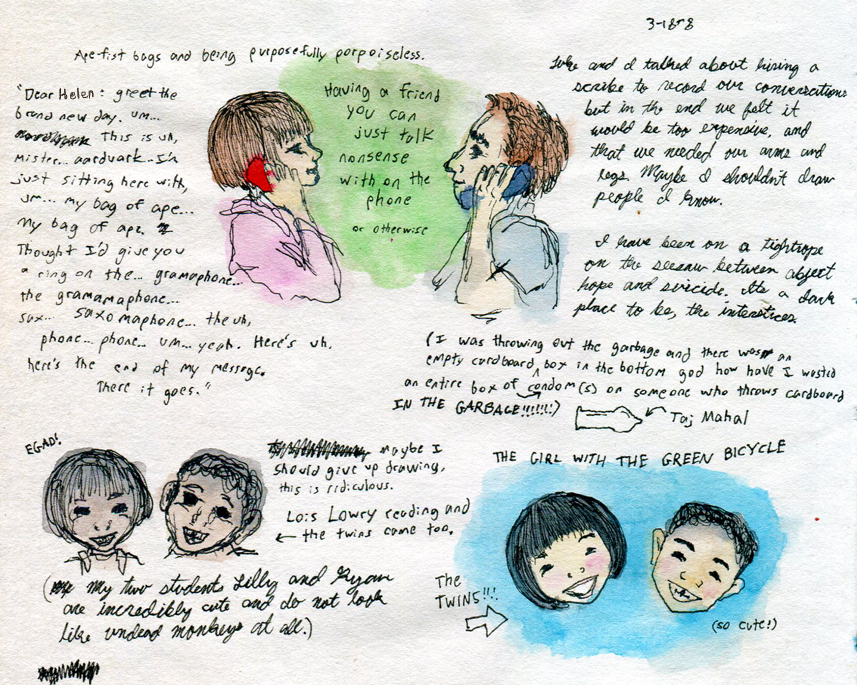 3-18-8
Ape fist bags and being purposefully porpoiseless.
"Dear Helen: greet the
brand new day. um...
This is uh,
mister... aardvark.. I'm
just sitting here with,
um... my bag of ape...
my bag of ape.
Thought I'd give you
a ring on the... gramaphone...
the gramamaphone...
sax... saxomaphone... the uh,
phone... phone... um... yeah. Here's uh.
here's the end of my message.
There it goes."
Having a friend
you can
just talk
nonsense
with on the
phone
or otherwise
Luke and I talked about hiring a
scribe to record our conversations
but in the end we felt it
would be too expensive, and
that we needed our arms and
legs. Maybe I shouldn't draw
people I know.
I have been on a tightrope
on the seesaw between abject
hope and suicide. Its a dark
place to be, the interstices.
(I was throwing out the garbage and there was an
empty cardboard box in the bottom god how have I wasted
an entire box of condom(s) on someone who throws cardboard
IN THE GARBAGE!!!!!!)
Taj Mahal
EGAD!
maybe I
should give up drawing,
this is ridiculous.
Lois Lowry reading and
the twins came too.
(My two students Lilly and Ryan
are incredibly cute and do not look
like undead monkeys at all.)
THE GIRL WITH THE GREEN BICYCLE
The
TWINS!!!
(so cute!)